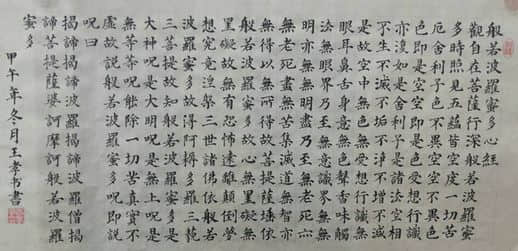 般若波羅蜜多心經
觀自在菩薩行深般若波羅蜜
多時照見五蘊皆空度一切苦
厄舍利子色不異空空不異色
色即是空空即是色受想行識
亦復如是舍利子是諸法空相
不生不滅不垢不淨不增不減
是故空中無色無受想行識無
眼耳鼻舌身意無色聲香味觸
法無眼界乃至無意識界無無
明亦無無明盡乃至無老死亦
無老死盡無苦集滅道無智亦
無得以無所得故菩提薩埵依
般若波羅蜜多故心無罣礙無
罣礙故無有恐怖遠離顛倒夢
想究竟涅槃三世諸佛依般若
波羅蜜多故得阿耨多羅三藐
三菩提故知般若波羅蜜多是
大神呪是大明呪是無上呪是
無等等呪能除一切苦真實不
虛故說般若波羅蜜多呪即說
呪曰
揭諦揭諦波羅揭諦波羅僧揭
諦菩提薩婆訶摩訶般若波羅
蜜多
甲午年冬月王書